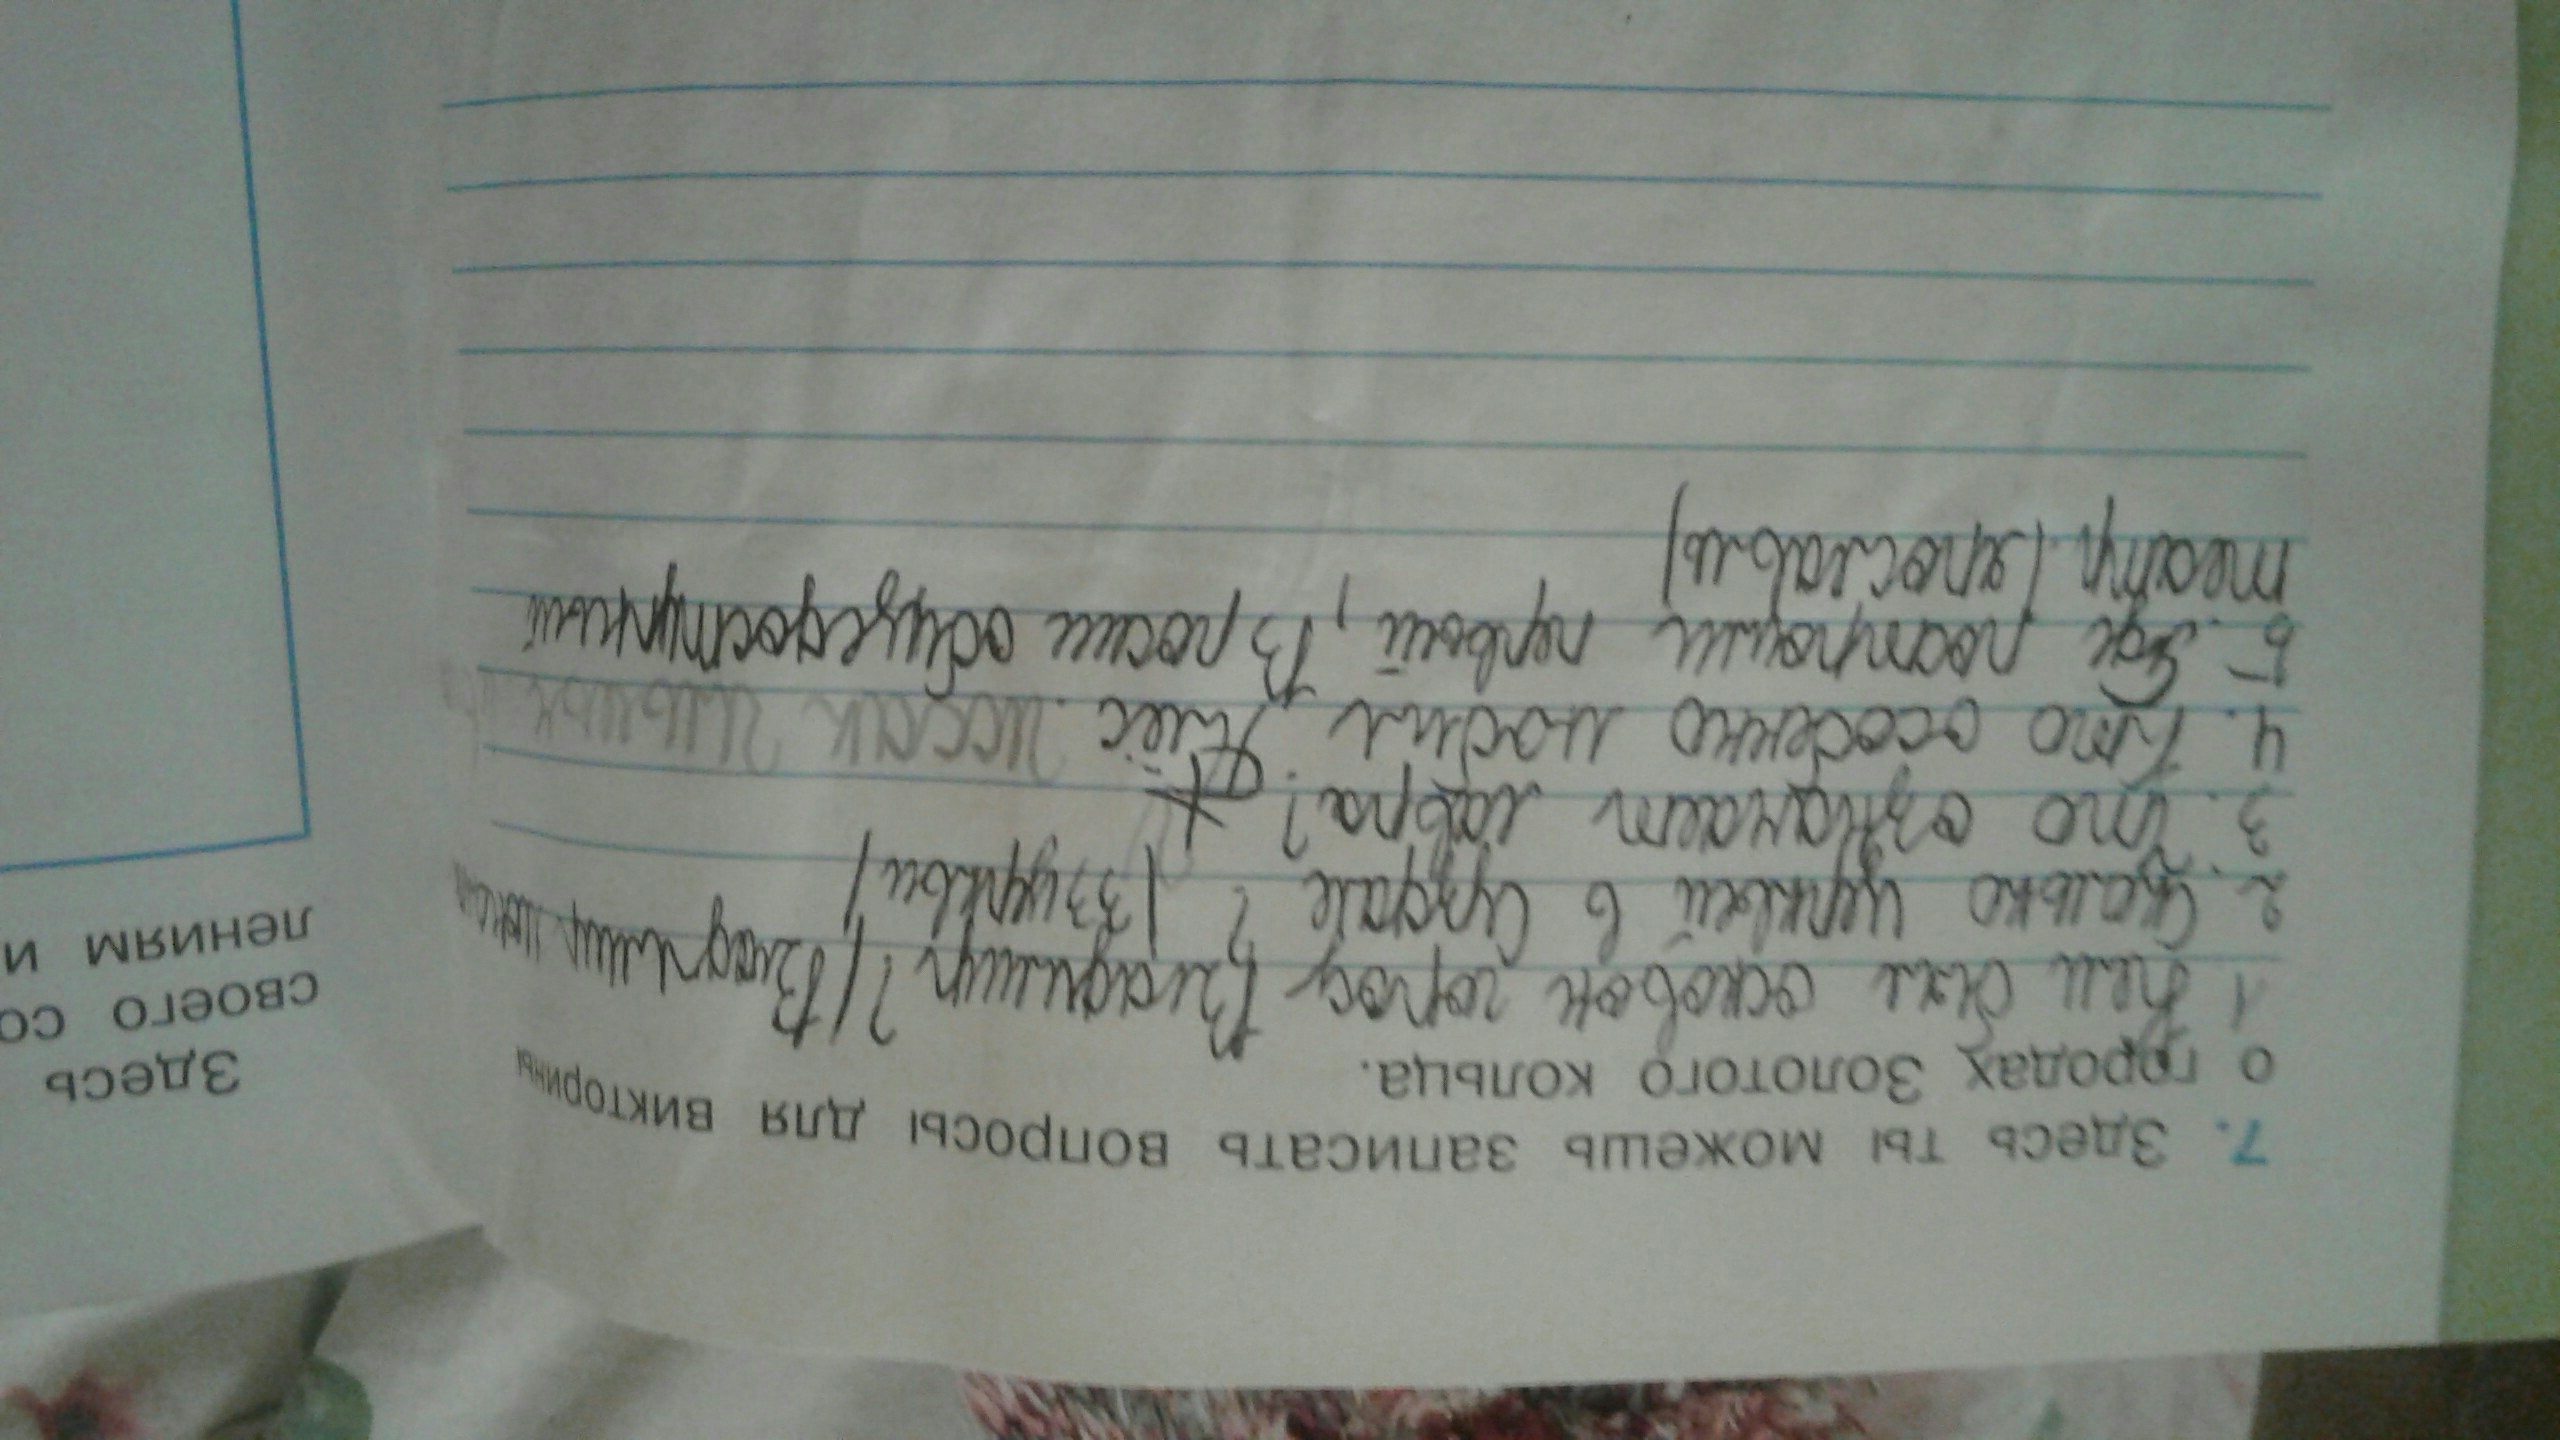 7. Здесь ты можешь записать вопросы для викторины
о городах Золотого кольца.
1 Кем был основон город Владимир? (Владимир
2. Сколько церквей в Суздале? (33 церкви)
3. Что означает лавра?
4. Кто особенно любил Плёс. Иссак Ильич
5. Где построили первый, В росии общедоступный
театр. (ярославль)
Здесь
своего со
лениям и